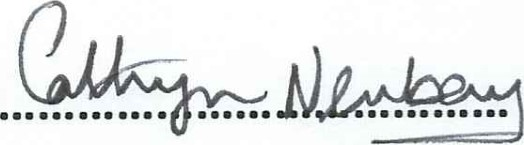 Cathryn Newbery